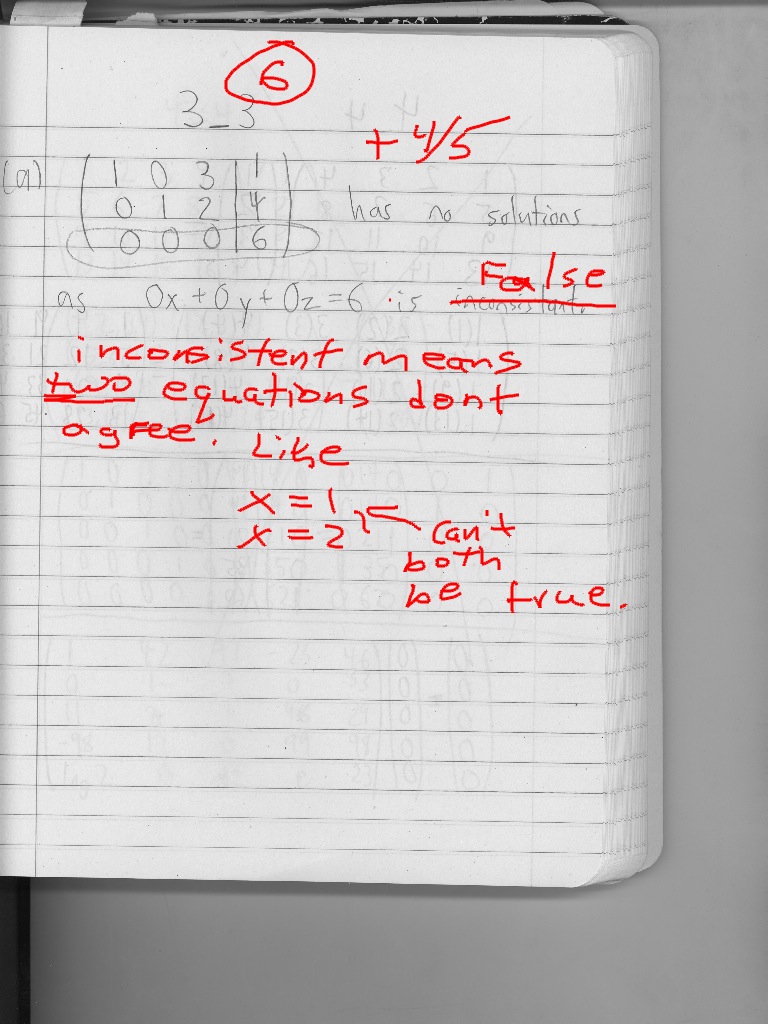 6
3_3
+4/5
(a) 1 0 3 | 1
0 1 2 | 4 has no solutions
0 0 0 | 6
False
as 0x + 0y + 0z = 6 is inconsistant.
inconsistent means
two equations dont
agree. Like
x = 1
x = 2 can't
both
be true.